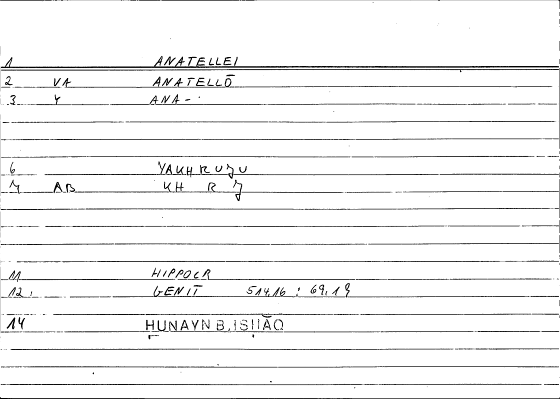 1 ANATELLEI
2 VA ANATELLŌ
3 Y ANA-
6 YAKHRUJU
7 AB KH R J
11 HIPPOCR
12. GENIT 514.16 : 69.19
14 HUNAYN B. ISḤĀQ